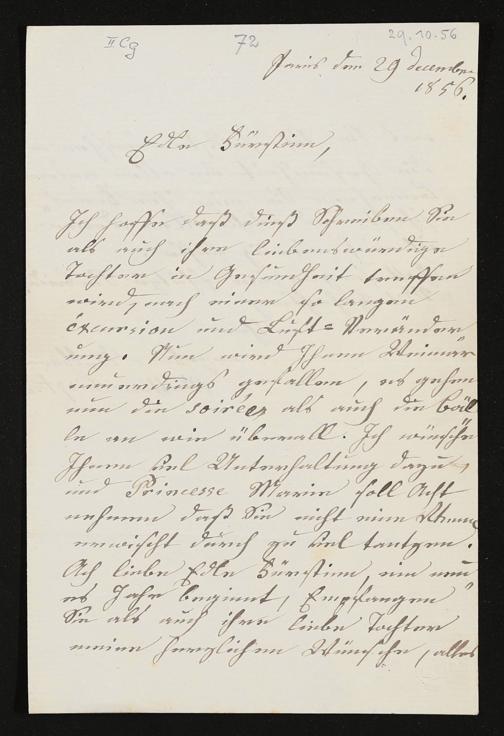 II Cg 72 29.10.56
Paris den 29 december
1856.
Edle Fürstinn,
Ich hoffe daß dieß Schreiben Sie
als auch ihre liebenswürdige
Tochter in Gesundheit treffen
wird, nach einer so langen
éxcursion und Luft=Veränder
ung. Nun wird Ihnen Weimar
neuerdings gefallen, es gehen
nun die soiréen als auch die bäl
le an wie überall. Ich wünsche
Ihnen viel Unterhaltung dazu,
und Princesse Marie soll Acht
nehmen daß Sie nicht eine
erwischt durch zu viel tantzen.
Ach liebe Edle Fürstinn, ein neu
es Jahr beginnt, Empfangen
Sie als auch ihre liebe Tochter
meine herzlichen Wünsche, alles